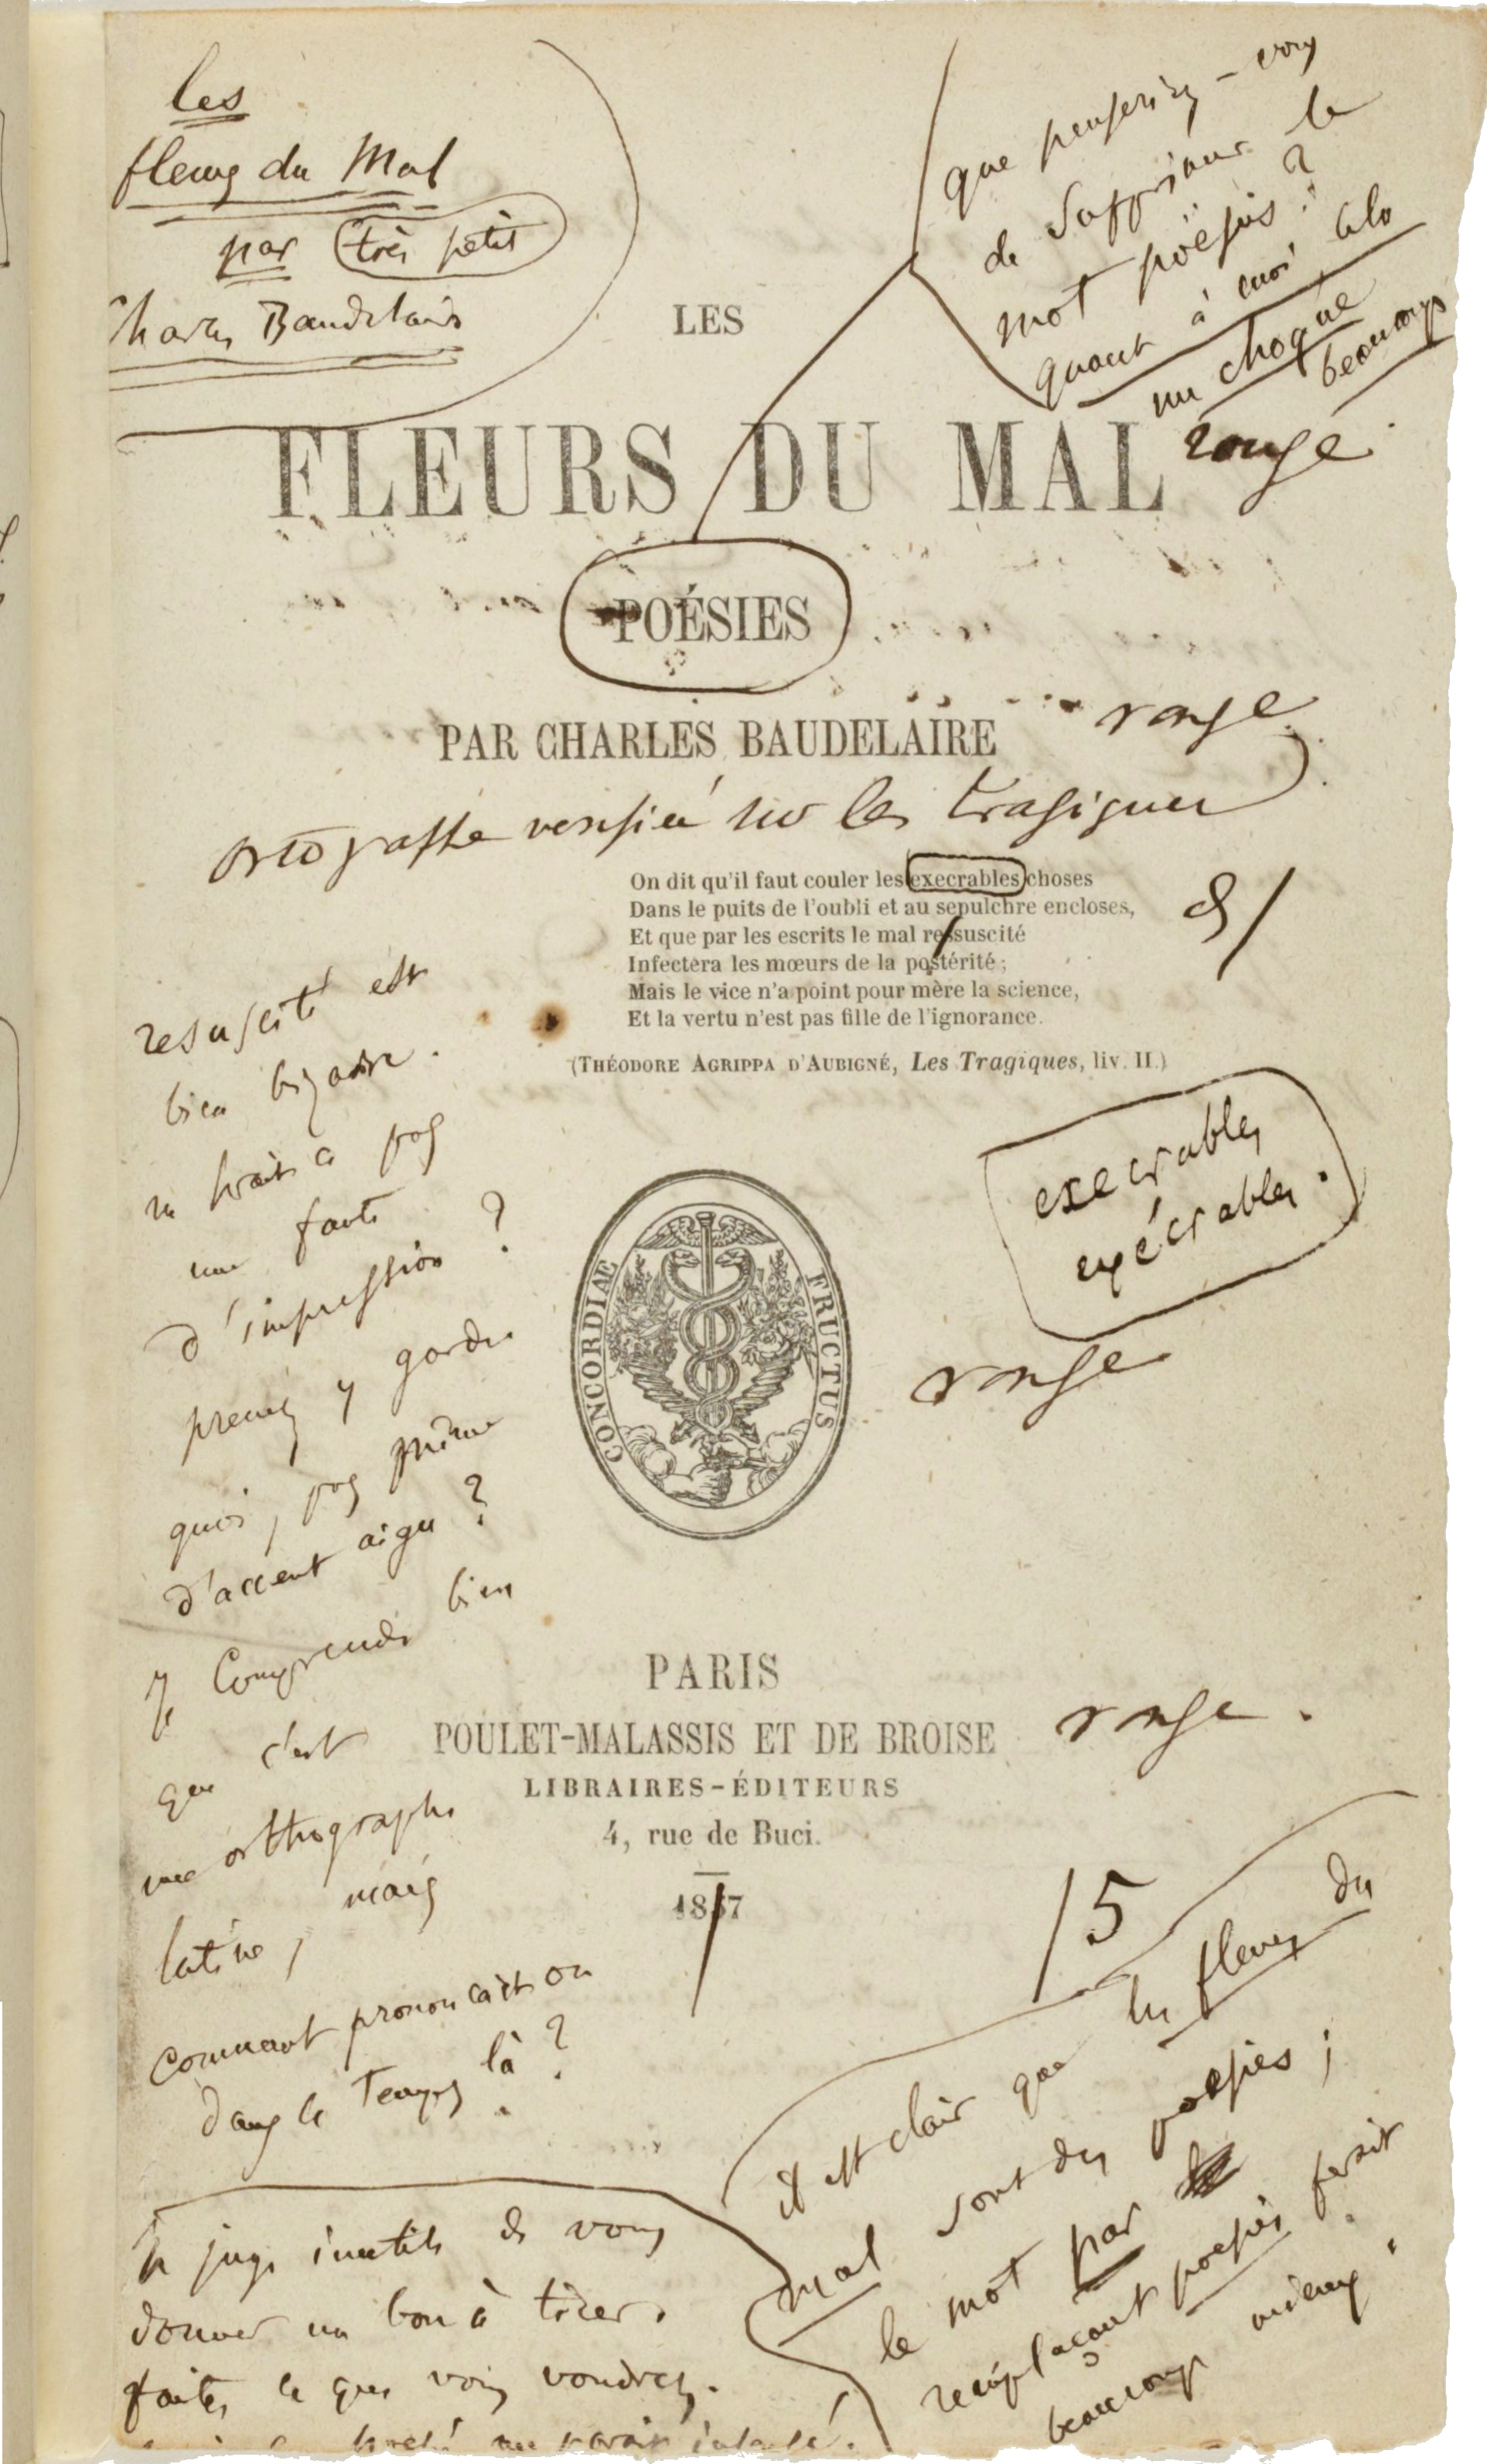 les
fleurs du Mal
par très petit
Charles Baudelaire
que penseriez-vous
de supprimer le
mot poësies ?
quant à moi cela
me choque
beaucoup
LES
FLEURS DU MAL
rouge
POÉSIES
PAR CHARLES BAUDELAIRE
rouge
ortografhe verifiée sur les tragiques
On dit qu'il faut couler les execrables choses
Dans le puits de l'oubli et au sepulchre encloses,
Et que par les escrits le mal ressuscité
Infectera les mœurs de la postérité ;
Mais le vice n'a point pour mère la science,
Et la vertu n'est pas fille de l'ignorance.
(THÉODORE AGRIPPA D'AUBIGNÉ, Les Tragiques, liv. II.)
resuscité est
bien bizarre.
ne serait ce pas
une faute
d'impression ?
prenez y garde
quoi, pas même
d'accent aigu ?
Je Comprends bien
que c'est
une orthographe
latine, mais
comment prononçait on
dans le temps là ?
execrables
exécrables.
rouge
CONCORDIAE FRUCTUS
PARIS
POULET-MALASSIS ET DE BROISE
rouge.
LIBRAIRES-ÉDITEURS
4, rue de Buci.
1857
/5
Je juge inutile de vous
donner un bon à tirer.
faites ce que vous voudrez.
il est clair que les fleurs du
mal sont des poesies ;
le mot par
remplaçant poesies ferait
beaucoup mieux.